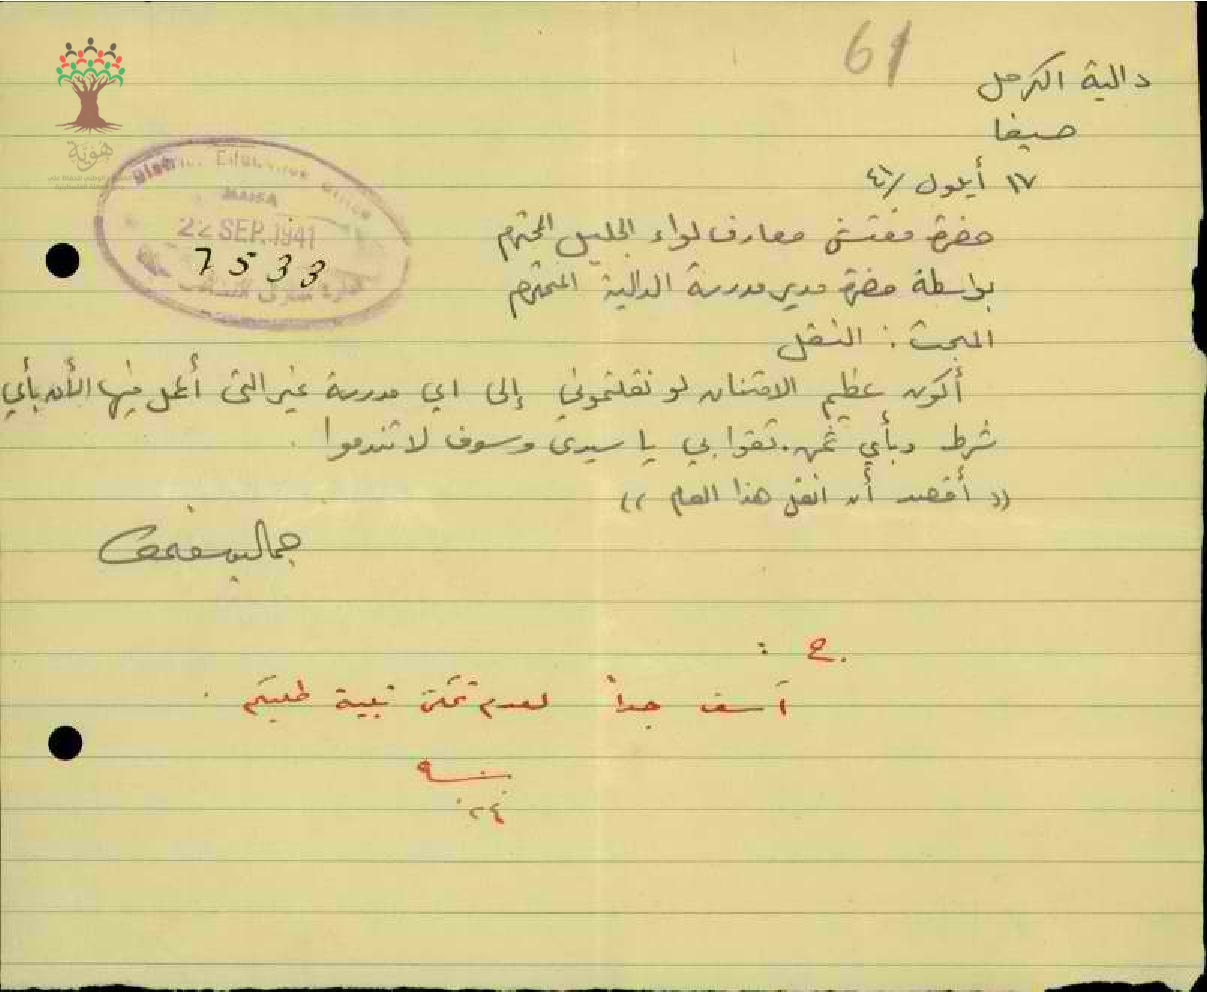 61
دالية الكرمل
حيفا
١٧ أيلول /٤١
District Education Office
HAIFA
22 SEP. 1941
7533
هوية
حضرة مفتش معارف لواء الجليل المحترم
بواسطة حضرة مدير مدرسة الدالية المحترم
المبحث : النقل
أكون عظيم الامتنان لو نقلتموني إلى اي مدرسة غير التي أعمل فيها الأن بأي
شرط وبأي ثمن. ثقوا بي يا سيدي وسوف لا تندموا .
(( أقصد أن انقل هذا العام ))
ج. :
آسف جداً لعدم تمكني تلبية طلبكم .